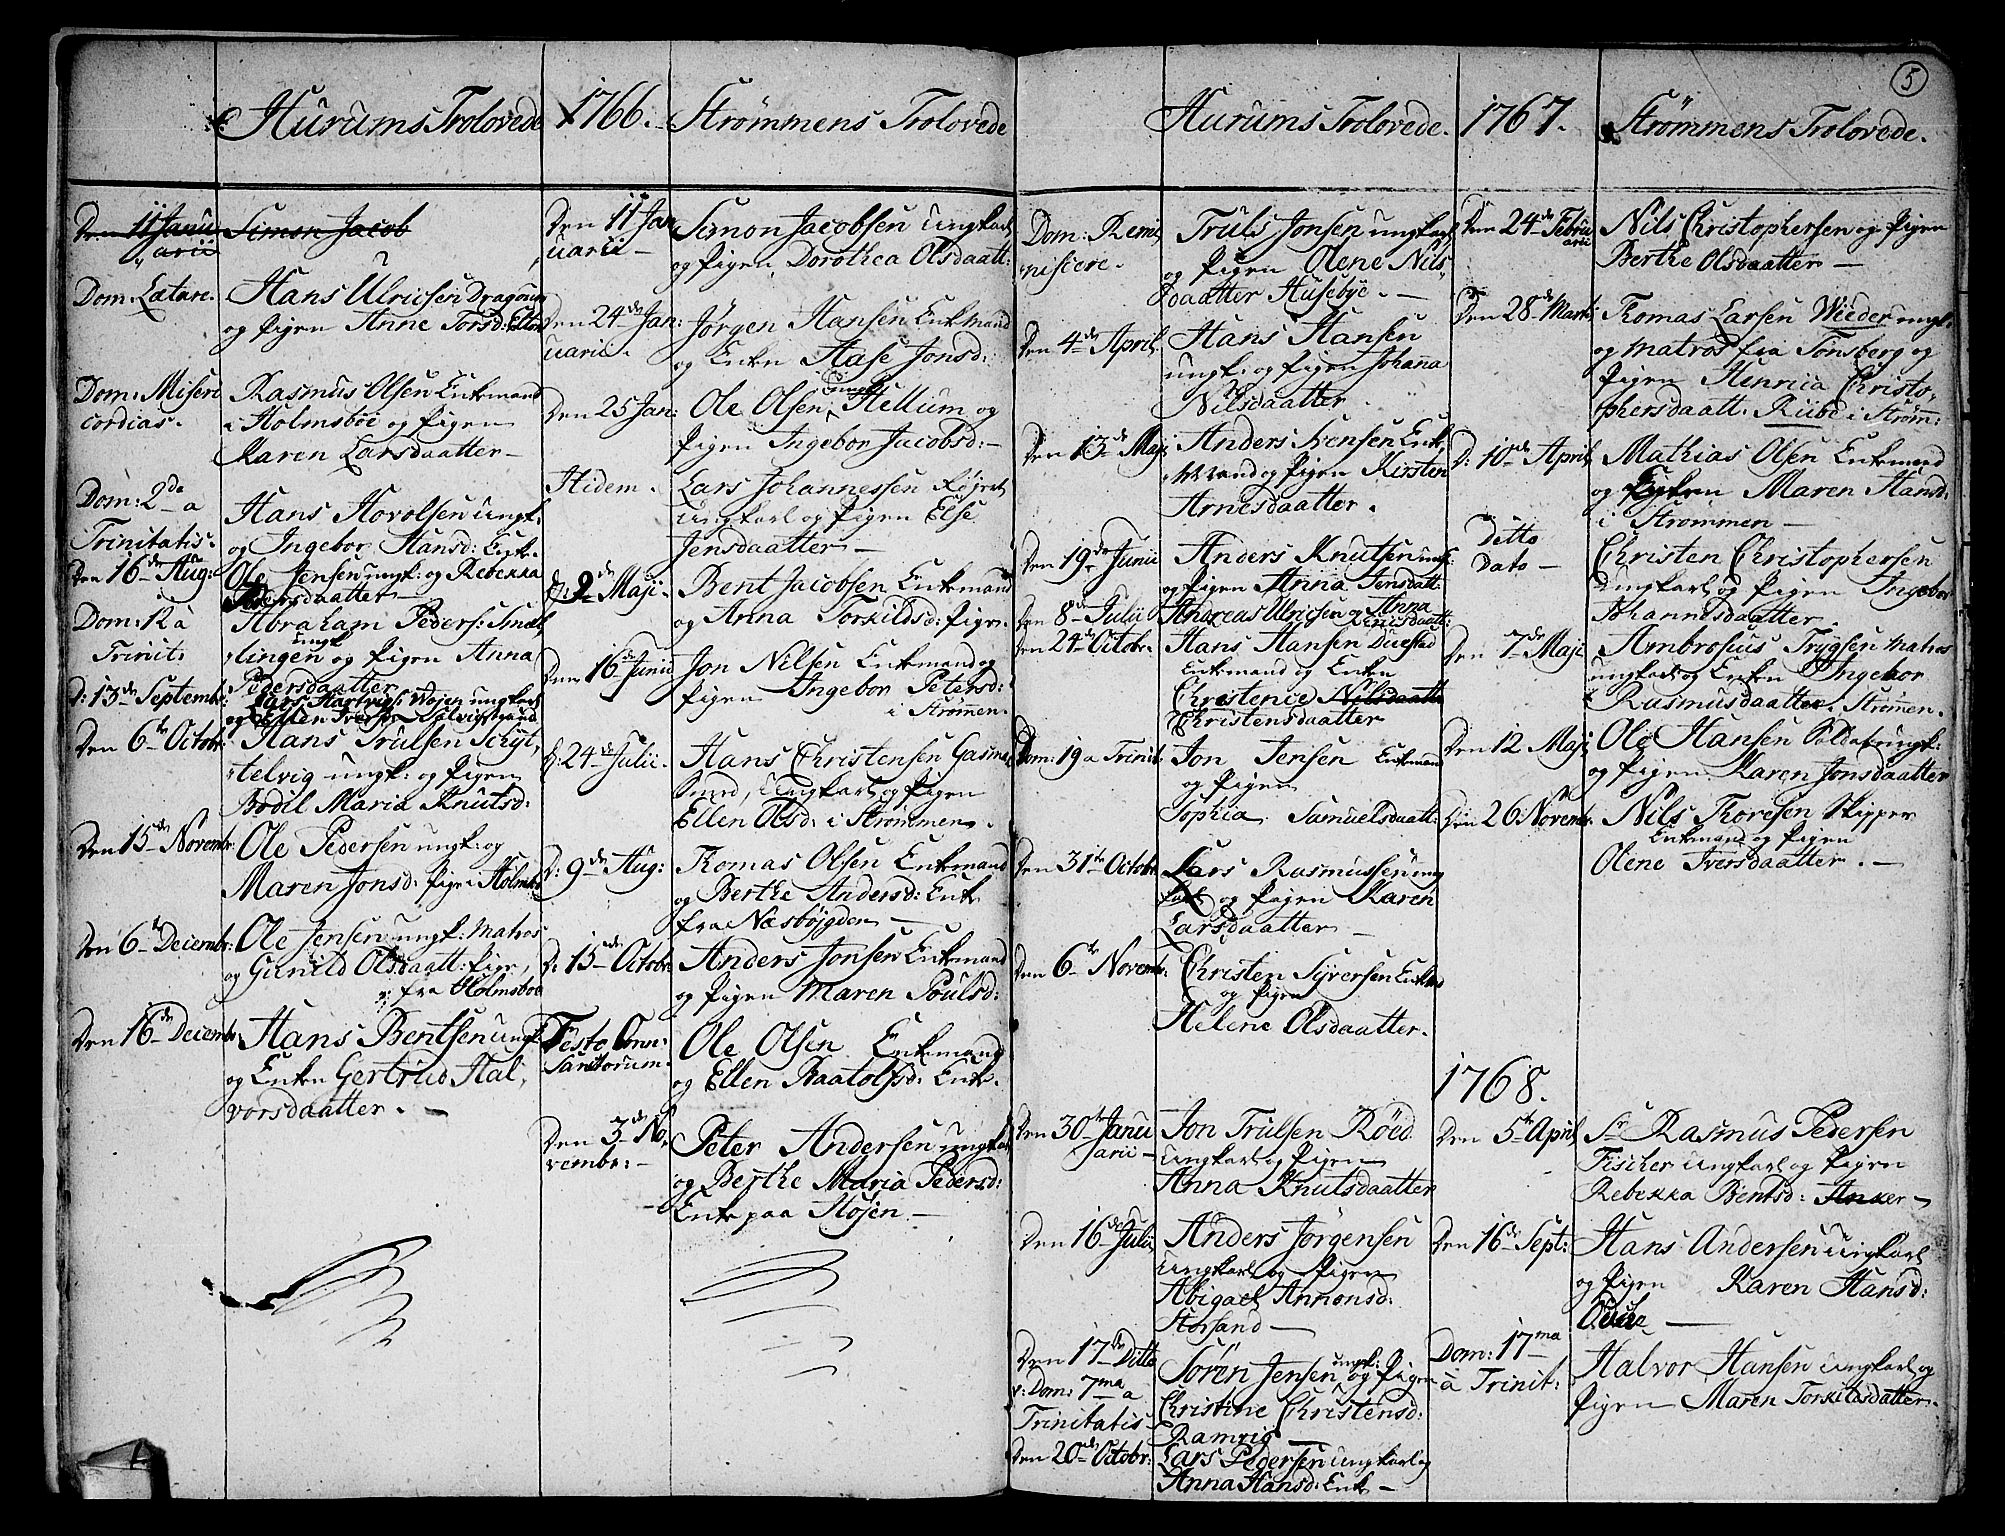 Hurums Trolovede 1766. Strømmens Trolovede
Den 11 Janu
arii
Simon Jacob
Dom: Lætare.
Hans Ulricsen Dragoun
og Pigen Anne Torsd:
Dom: Miseri
cordias.
Rasmus Olsen Enkemand
i Holmsboe og Pigen
Karen Larsdaatter
Dom: 2da a
Trinitatis
Hans Hovolsen ungk:
og Ingebor Hansd: Enk.
Den 16de Aug:
Ole Jensen ungk: og Rebekka
Pedersdaatter
Dom: 12 à
Trinit:
Abraham Peders: Smæl
ungk
lingen og Pigen Anna
Pedersdaatter
D: 13de Septembr:
Lars Hartvigs: ungkarl
og Ellen
Den 6te Octobr:
Hans Trulsen
telvig ungk: og Pigen
Bodil Maria Knutsd:
Den 15de Novembr:
Ole Pedersen ungk: og
Maren Jonsd: Pige i Holmsb
Den 6te Decembr:
Ole Jensen ungk: Matros
og Gunild Olsdaatt: Pige
fra Holmsboe
Den 16de Decembr:
Hans Bentsen ungk
og Enken Gertrud Hal,
vorsdaatter.
Den 11 Jan
uarii
Simon Jacobsen ungkarl
og Pigen Dorothea Olsdaatt:
Den 24de Jan:
uarii.
Jørgen Hansen Enkemand
og Enken Aase Jonsd:
Den 25 Jan:
ungk
Ole Olsen Hellum og
Pigen Ingebor Jacobsd:
Hidem.
Lars Johannessen
ungkarl og Pigen Else
Jensdaatter
D: 2de Maji.
Bent Jacobsen Enkemand
og Anna Torkildsd: Pige
Den 16de Junii
Jon Nilsen Enkemand og
Pigen Ingebor Petersd:
i Strømmen.
D: 24de Julii.
Hans Christensen
Smed, ungkarl og Pigen
Ellen Olsd: i Strømmen.
D: 9de Aug:
Thomas Olsen Enkemand
og Berthe Andersd: Enke
fra Næsbøjgden
D: 15de Octobr
Anders Jonsen Enkemand
og Pigen Maren Poulsd:
Festo Omn:
Sanctorum.
Ole Olsen Enkemand
og Ellen Baatolfsd: Enke.
Den 3de No,
vembr:
Peter Andersen ungkarl
og Berthe Maria Pedersd:
Enke paa Støsen.
5
Hurums Trolovede. 1767. Strømmens Trolovede.
Dom: Remi
niscere.
Truls Jonsen ungkarl
og Pigen Olene Nils,
daatter Husebye.
Den 4de April
Hans Hansen
ungk: og Pigen Johana
Nilsdaatter.
Den 13de Maji
Anders Ivensen Enke,
mand og Pigen Kirsten
Arnesdaatter.
Den 19de Junii
Anders Knutsen ungk:
og Pigen Anna Jensdaatt:
Den 8de Julii
Andreas Ulricsen og Anna
Den 24de Octobr.
Hans Hansen
Enkemand og Enken
Christence Nilsdaatt
Christensdaatter
Dom: 19 a Trinit.
Jon Jensen Enkemand
og Pigen
Sophia Samuelsdaatt:
Den 31te Octobr
Lars Rasmussen ung
karl og Pigen Karen
Larsdaatter
Den 6te Novembr.
Christen Syversen Enkem
og Pigen
Helene Olsdaatter.
Den 30te Janu
arii
Jon Trulsen Röed
ungkarl og Pigen
Anna Knutsdaatter
Den 16de Julii
Anders Jørgensen
ungkarl og Pigen
Abigael Annonsd:
Storsand
Den 17de Ditto
: Dom: 7ma a
Trinitatis
ungk:
Sören Jensen og Pigen
Christine Christensd:
Ramvig
Den 20de Octobr:
Lars Pedersen ungkarl og
Anna Hansd: Enke
Den 24de Febru
arii
Nils Christophersen og Pigen
Berthe Olsdaatter
Den 28de Marti
Thomas Larsen Wieder ungk:
og Matros fra Tønsberg og
Pigen Henrica Christo,
phersdaatt: i Strøm:
D: 10de April
Mathias Olsen Enkemand
og Pigen Maren Hansd:
i Strømmen
Ditto
Dato
Christen Christophersen
ungkarl og Pigen Ingebor
Johannesdaatter.
Den 7de Maji
Ambrosius Trygsen Matros
ungkarl og Enken Ingebor
Rasmusdaatter. Strømen.
Den 12 Maji
Ole Hansen Soldat ungk:
og Pigen Karen Jonsdaatter
Den 26 Novembr
Nils Thoresen Skipper
Enkemand og Pigen
Olene Iversdaatter.
1768.
Den 5te April
Sr Rasmus Pedersen
Fischer ungkarl og Pigen
Rebekka Bentsd: Anker
Den 16de Sept:
Hans Andersen ungkarl
og Pigen Karen Hansd:
Dom: 17ma
à Trinit:
Halvor Hansen ungkarl og
Pigen Maren Torkildsdatter.